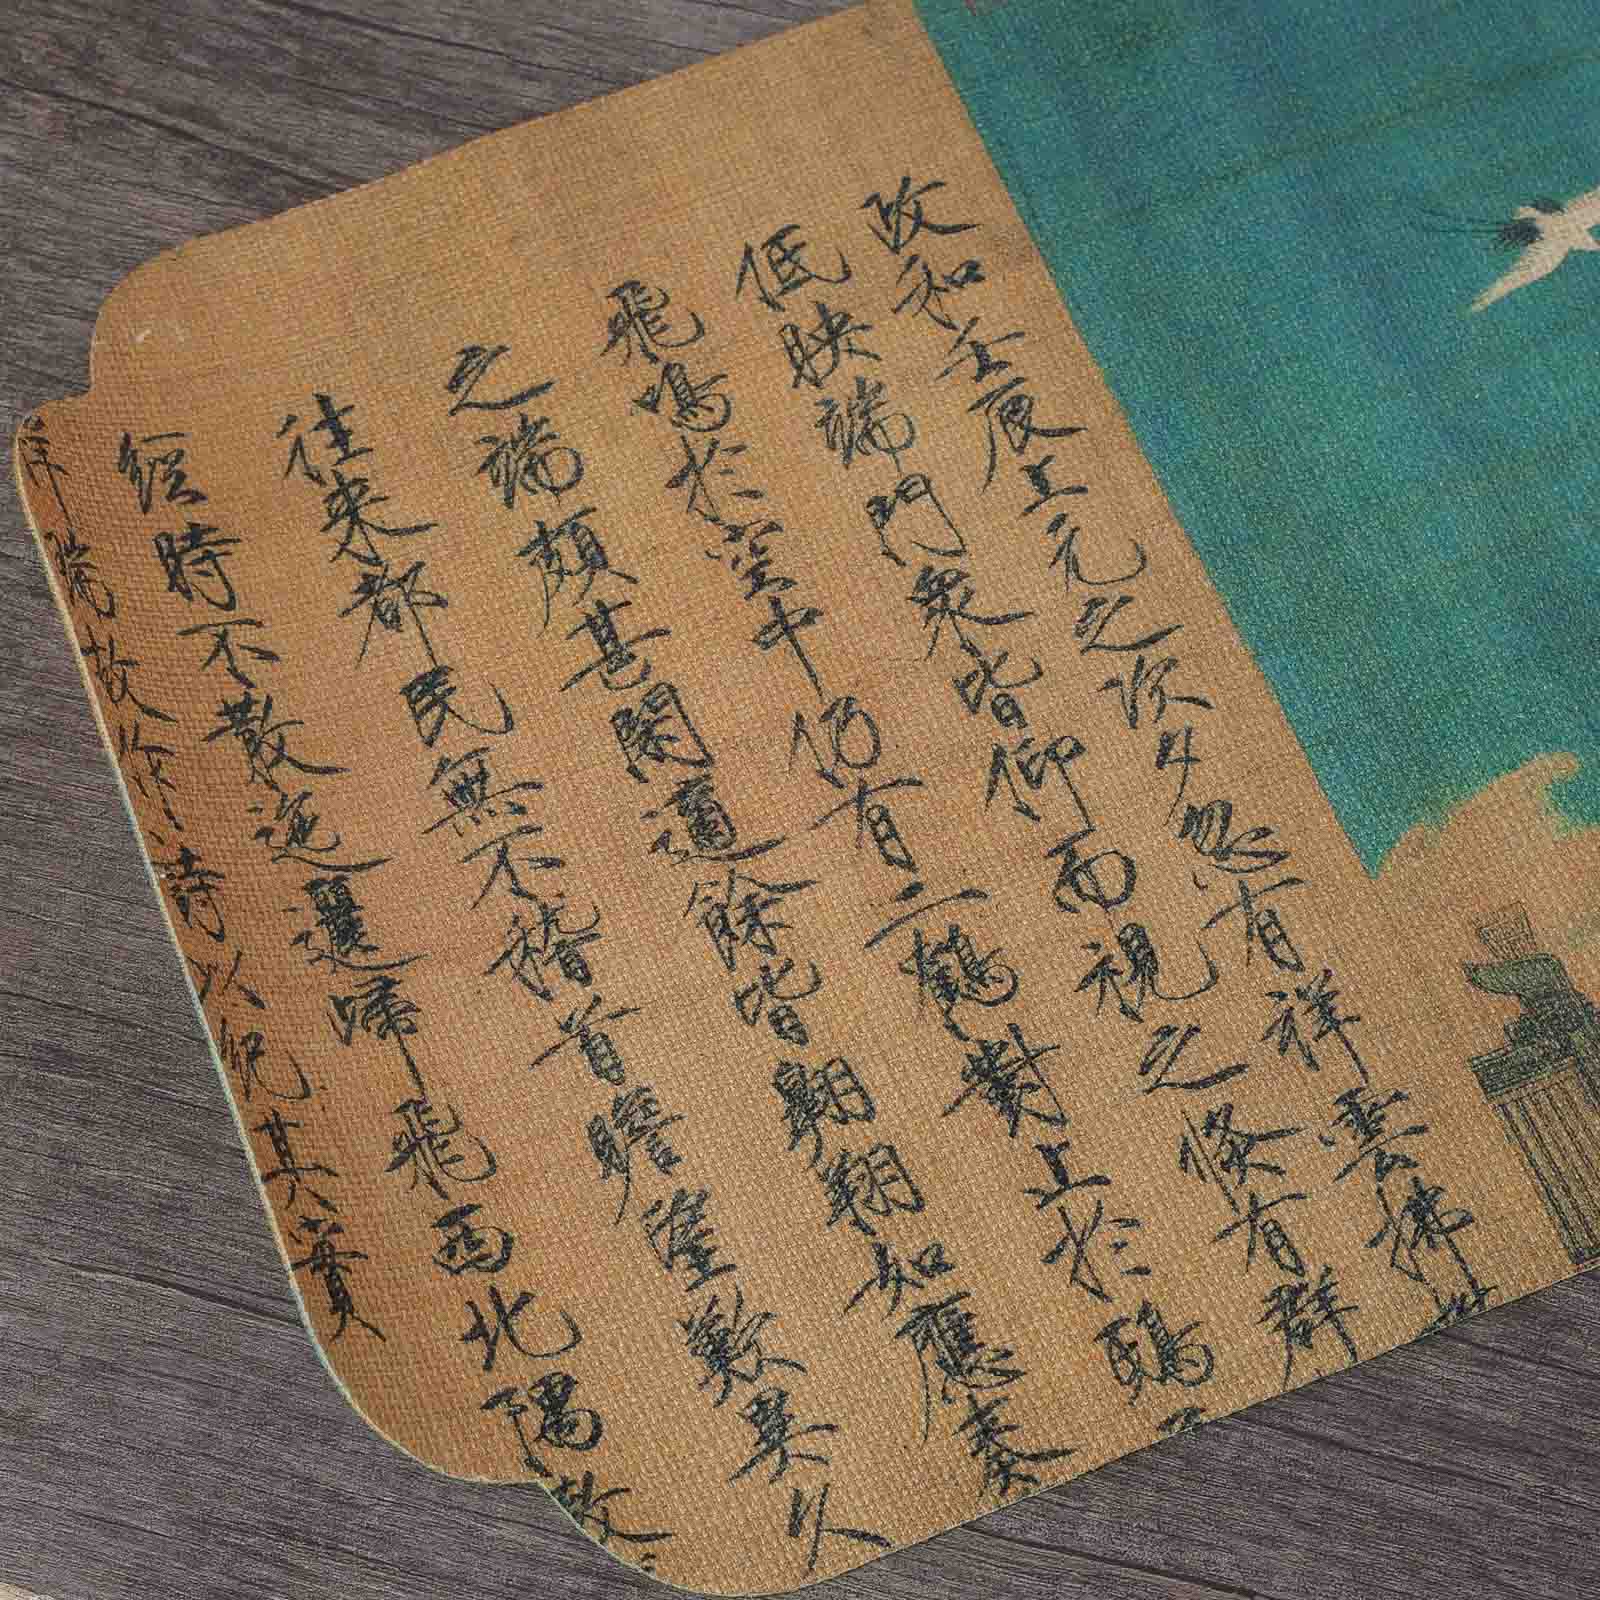 政和壬辰上元之次夕忽有祥雲拂
低映端門衆皆仰而視之倏有群
飛鳴於空中仍有二鶴對止於鴟
之端頗甚閑適餘皆翺翔如應奏
往來都民無不稽首瞻望歎異久
經時不散迤邐歸飛西北隅散
祥瑞故作詩以紀其實